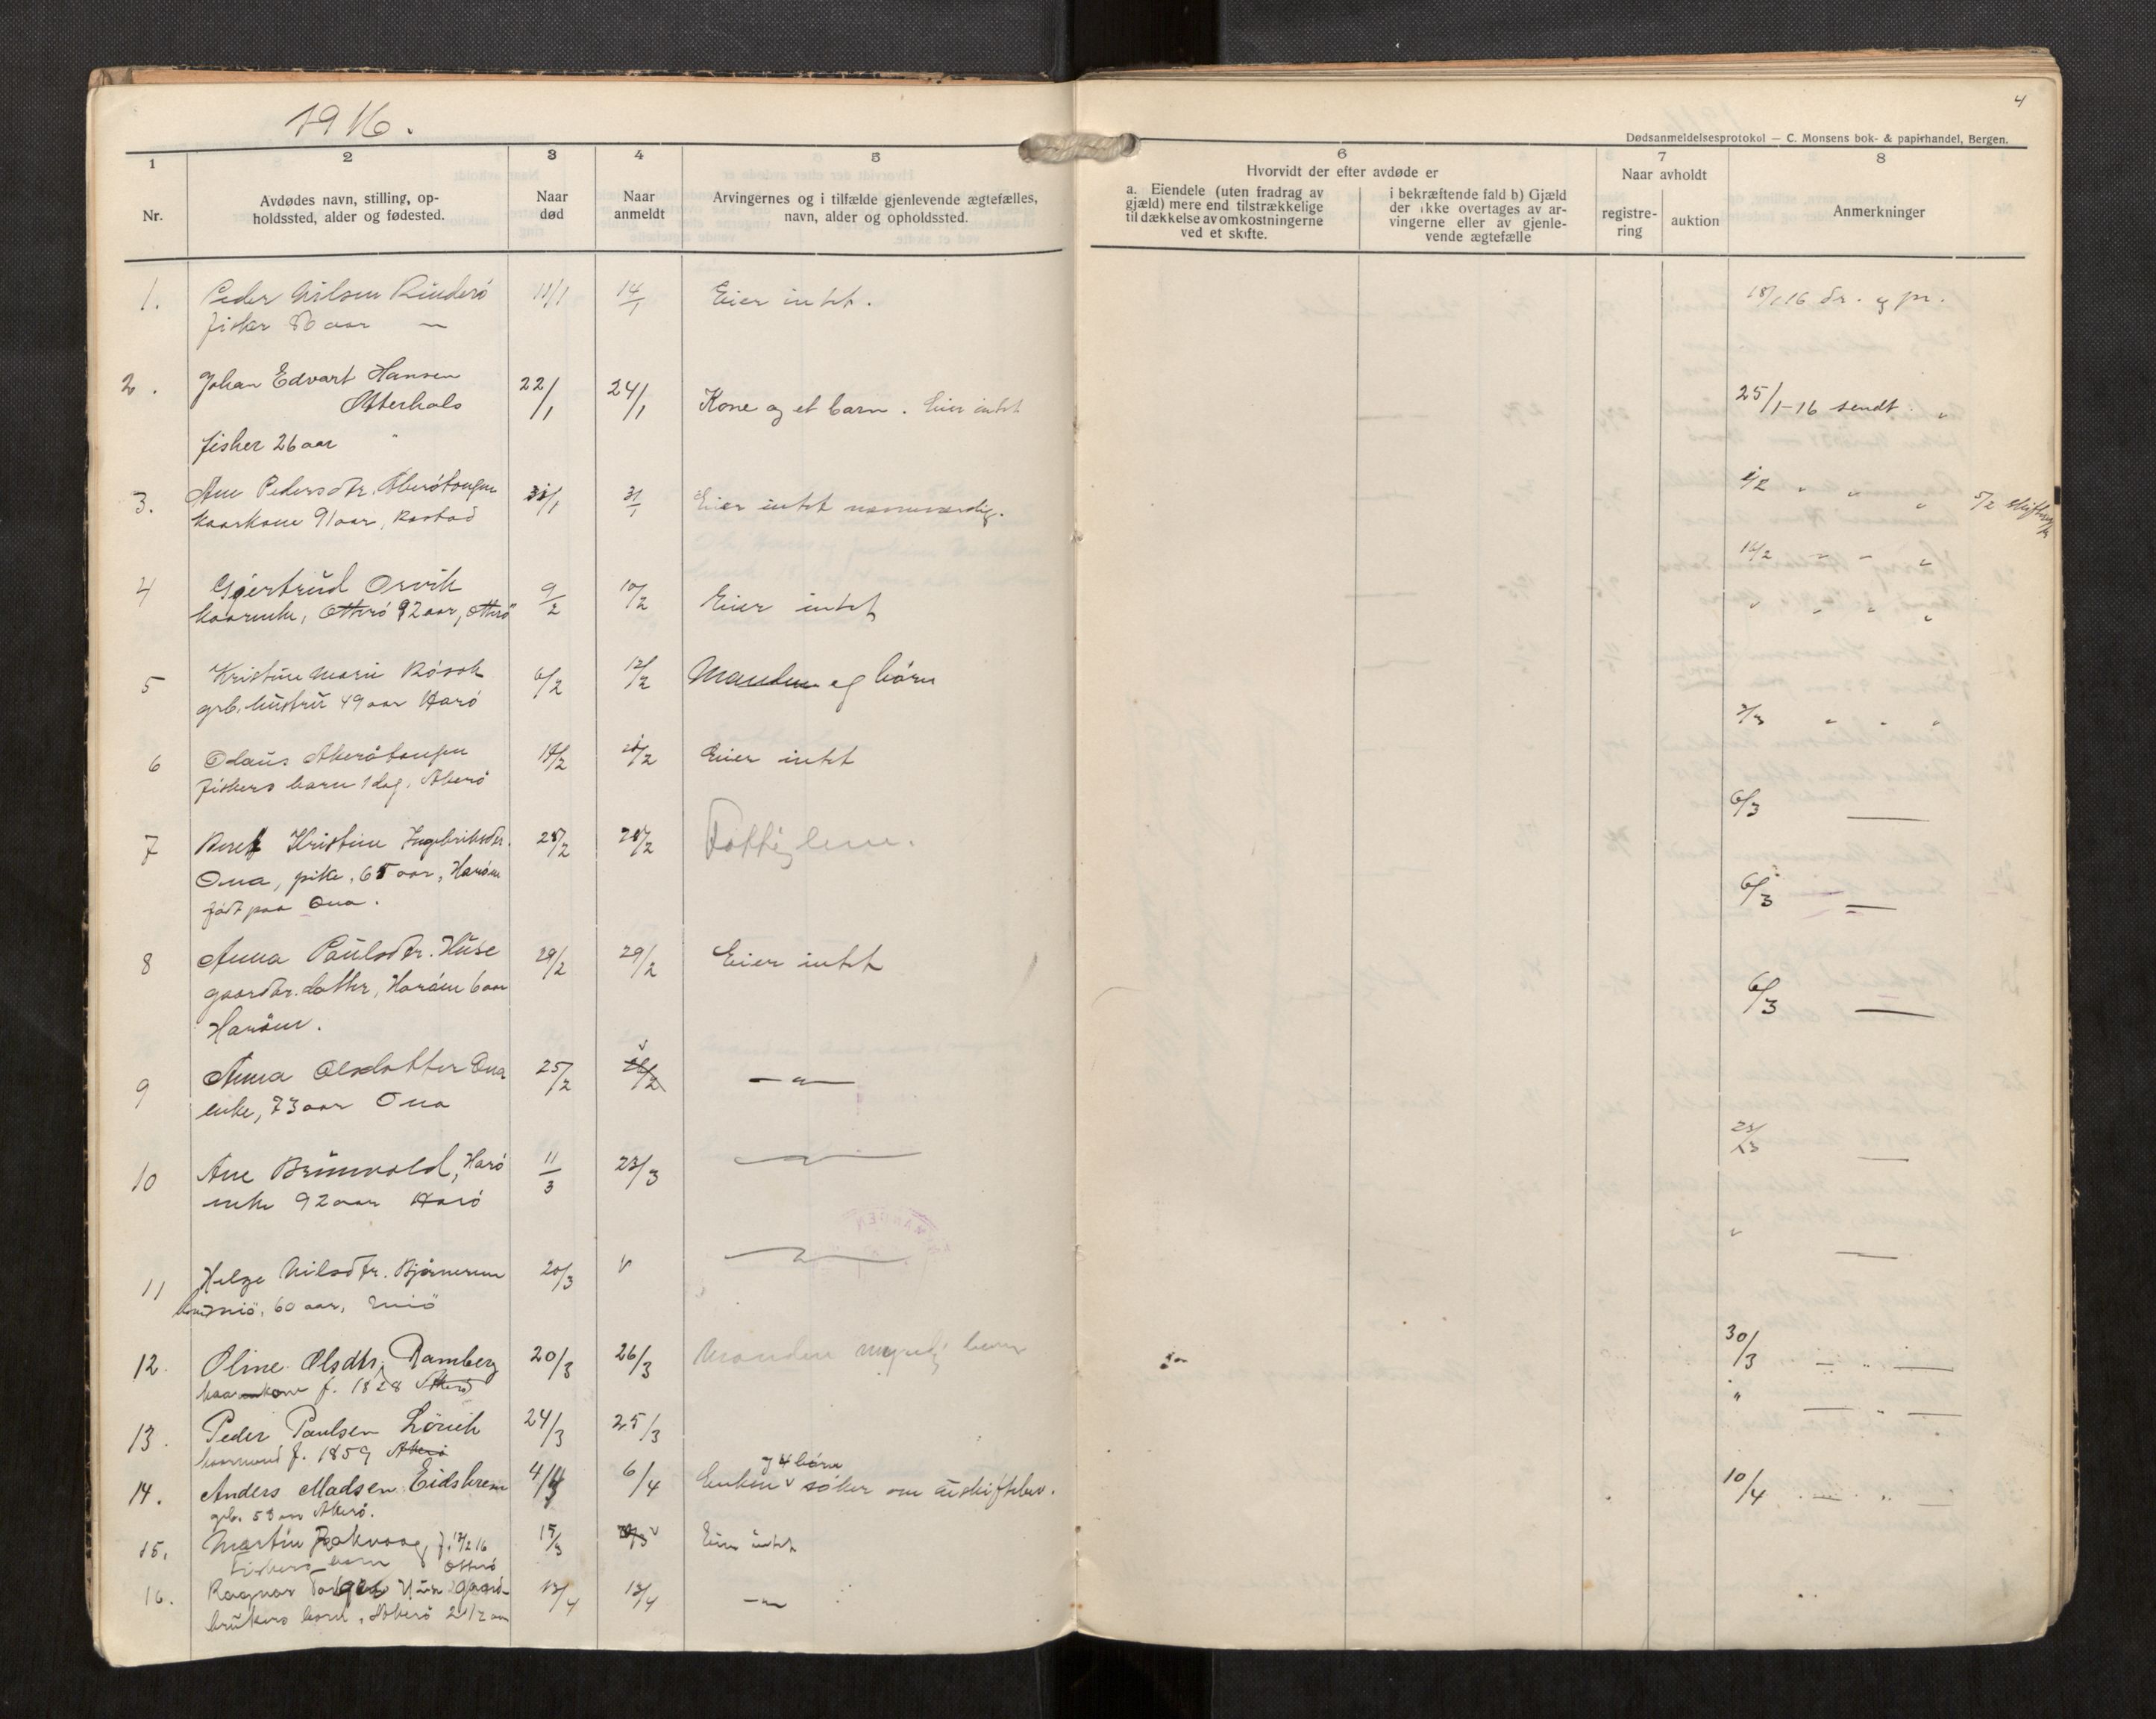 1916.
4
Dødsanmeldelsesprotokol — C. Monsens bok- & papirhandel, Bergen.
1
Nr.
2
Avdødes navn, stilling, op-
holdssted, alder og fødested.
3
Naar
død
4
Naar
anmeldt
5
Arvingernes og i tilfælde gjenlevende ægtefælles,
navn, alder og opholdssted.
6
Hvorvidt der efter avdøde er
a. Eiendele (uten fradrag av
gjæld) mere end tilstrækkelige
til dækkelse av omkostningerne
ved et skifte.
i bekræftende fald b) Gjæld
der ikke overtages av ar-
vingerne eller av gjenle-
vende ægtefælle
7
Naar avholdt
registre-
ring
auktion
8
Anmerkninger
1. Peder Nilsen Rinderö 14/1 Eier intet. 18/1 16 Dr. og pr.
fisker 80 aar
2. Johan Edvart Hansen
Otterhals 22/1 24/1 Kone og et barn. Eier intet 25/1-16 sendt "
fisker 26 aar "
3. Ane Pedersdtr. Akerötangen 31/1 Eier intet nævneværdig. 5/2
kaarkone 91 aar,
4 Gjertrud Orvik 9/2 10/2 Eier intet 16/2 " " "
kaarenke, Otterö 92 aar, Otterö
5 Kristine Marie Rösok 6/2 12/2 Manden og börn
grb. hustru 49 aar Harö
6 Olaus Akerötangen 18/2 Eier intet
fiskers barn 1 dag, Akerö
7 Beret Kristine Ingebriktsdtr. 28/2 28/2 Fattiglem. 6/3 —
Ona, pike, 65 aar, Haröen
födt paa Ona.
8 Anna Paulsdtr. Huse 29/2 29/2 Eier intet 6/3 —
gaardbr. datter, Haröen 6 aar
Haröen.
9 Anna Olsdatter Ona 25/2 — " — 6/3 —
enke, 73 aar Ona
10 Ane Brunvold, Harö 11/3 23/3 — " — 23/3 —
enke 92 aar Harö
11 Helge Nilsdtr. Bjørnerem 20/3 v — " — " —
60 aar, Miö
12. Oline Olsdtr. Ramberg 20/3 26/3 Manden myndig barn 30/3 — " —
kaarkone f. 1828 Akerö
13. Peder Paulsen Lörvik 24/3 25/3 " — " —
kaarmand f. 1859 Akerö
og 4 börn
14. Anders Madsen Eidskrem 4/4 6/4 Enken v söker om uskiftebev. 10/4 — " —
grb. 53 aar Akerö.
15. Martin Rakvaag, f. 12/2 16 15/3 v Eier intet
Fiskers barn Otterö
16. Ragnar Huse gaard- 13/4 13/4 — " —
brukers barn, Akerö 2 1/2 aar